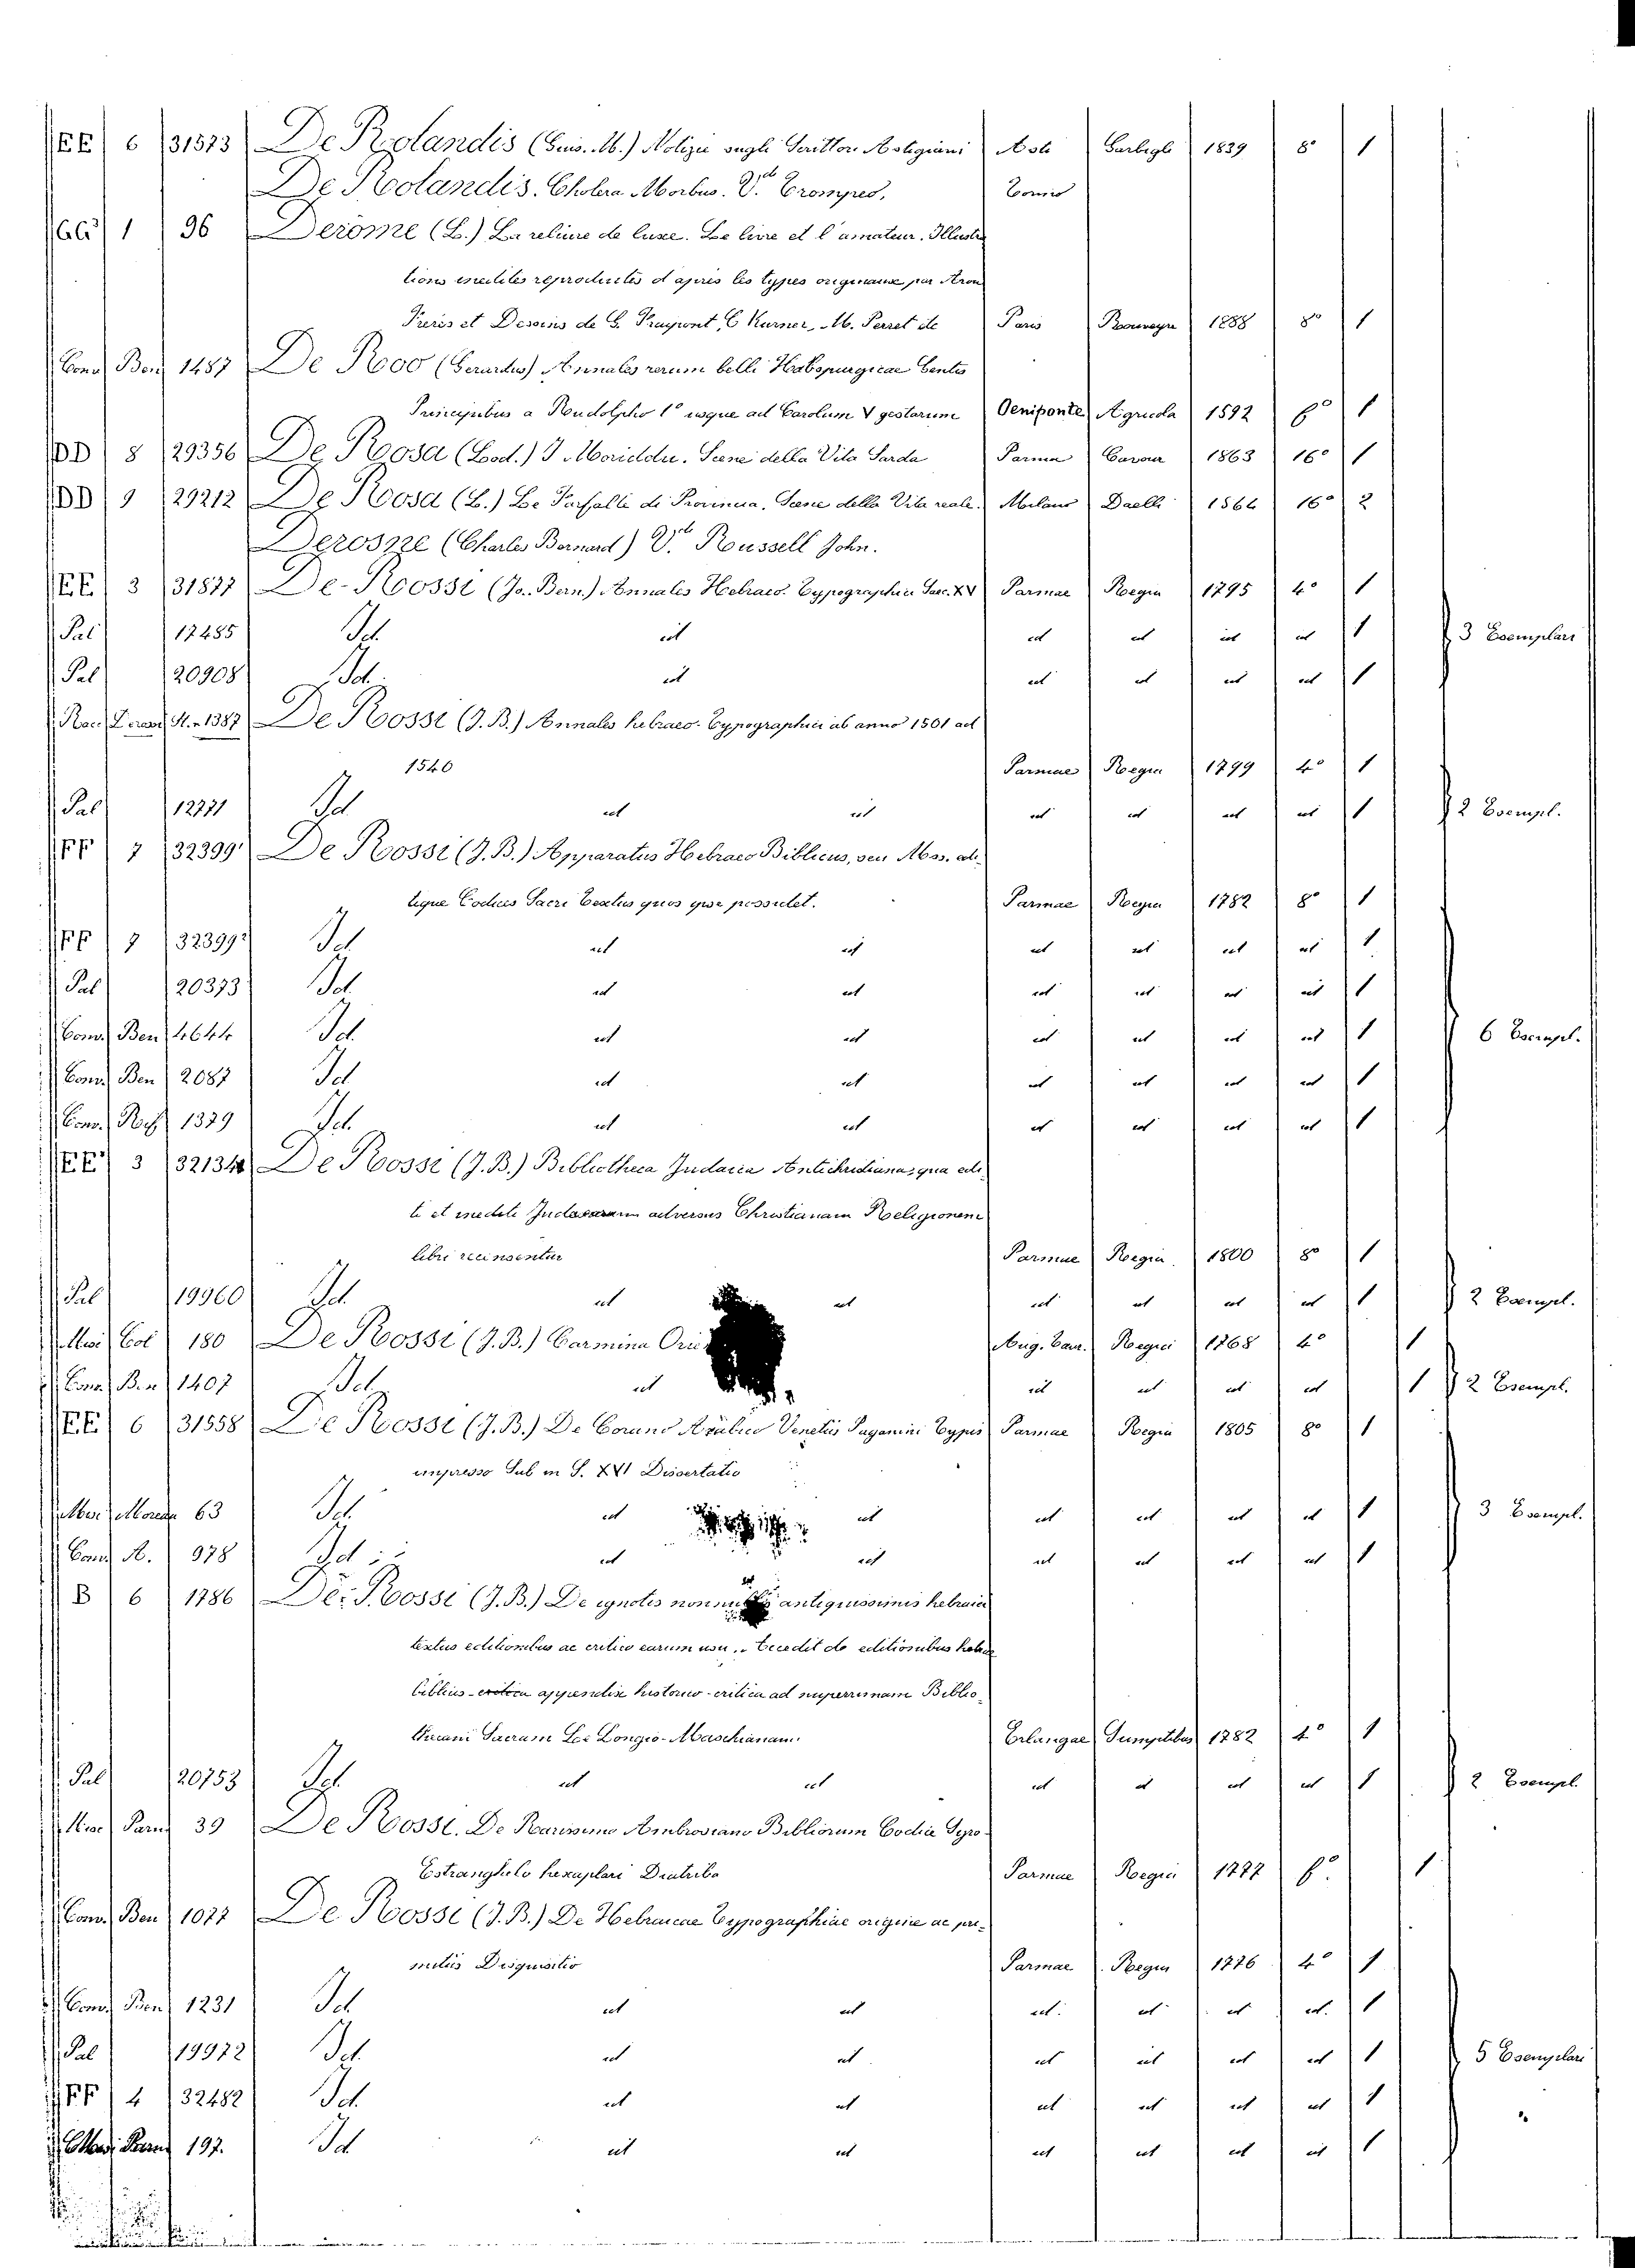 EE 6 31573 De Rolandis (Gius. M.) Notizie sugli Scrittori Astigiani Asti Garbigli 1839 8° 1
De Rolandis. Cholera Morbus. V. Tomo
GG 1 96 Derome (L.) La reliure de luxe. Le livre et l'amateur. Illustra
tions inedites reproduites d'apres les types originaux par Aron
Freres et Dessins de G. Fraipont, C Kurner, M. Perret etc Paris Rouveyre 1888 8° 1
Conv Ben 1487 De Roo (Gerardus) Annales rerum belli Habspurgicae Gentis
Principibus a Rudolpho 1° usque ad Carolum V gestarum Oeniponte Agricola 1592 f° 1
DD 8 29356 De Rosa (Lod.) I Moriddu. Scene della Vita Sarda Parma Cavour 1863 16° 1
DD 9 29212 De Rosa (L.) Le Farfalle di Provincia. Scene della Vita reale. Milano Daelli 1864 16° 2
Derosne (Charles Bernard) V. Roussell John.
EE 3 31877 De-Rossi (Jo. Bern.) Annales Hebraeo Typographici Saec. XV Parmae Regia 1795 4° 1
Pal 12485 Id. id id id id id 1 3 Esemplari
Pal 20908 Id. id id id id id 1
N. 1387 De Rossi (J.B.) Annales hebraeo-Typographici ab anno 1501 ad
1540 Parmae Regia 1799 4° 1
Pal 12771 Id. id id id id id id 1 2 Esempl.
FF 7 32399 De Rossi (J.B.) Apparatus Hebraeo Biblicus, seu Mss. edi
tique Codices Sacri Textus quos ipse possidet. Parmae Regia 1782 8° 1
FF 7 32399² Id. id id id id id id 1
Pal 20373 Id. id id id id id id 1
Conv. Ben 4644 Id. id id id id id id 1 6 Esempl.
Conv. Ben 2087 Id. id id id id id id 1
Conv. 1379 Id. id id id id id id 1
EE 3 32134 De Rossi (J.B.) Bibliotheca Judaica Antichristiana, qua edi
ti et inediti Judaeorum adversus Christianam Religionem
libri recensentur Parmae Regia 1800 8° 1
Pal 19960 Id. id id id id id id 1 2 Esempl.
Misc Col 180 De Rossi (J.B.) Carmina Aug. Taur. Regia 1768 4° 1
Conv. Ben 1407 Id. id id id id id 1 2 Esempl.
EE 6 31558 De Rossi (J.B.) De Corano Arabico Venetiis Paganini Typis Parmae Regia 1805 8° 1
impresso Sub in S. XVI Dissertatio
Misc 63 Id. id id id id id id 1 3 Esempl.
Conv. A. 978 Id. id id id id id id 1
B 6 1786 De Rossi (J.B.) De ignotis antiquissimis hebraici
textus editionibus ac critico earum usu. Accedit de editionibus hebraeo
biblicis appendix historico-critica ad nuperrimam Biblio
thecam Sacram Le Longio-Maschianam. Erlangae Sumptibus 1782 4° 1
Pal 20753 Id. id id id id id id 1 2 Esempl.
Misc Parm 39 De Rossi. De Rarissimo Ambrosiano Bibliorum Codice Syro-
Estranghelo hexaplari Diatriba Parmae Regia 1777 f°. 1
Conv. Ben 1077 De Rossi (J.B.) De Hebraicae Typographiae origine ac pri-
mitiis Disquisitio Parmae Regia 1776 4° 1
Conv. Ben 1231 Id. id id id id id id 1
Pal 19972 Id. id id id id id id 1 5 Esemplari
FF 4 32482 Id. id id id id id id 1
197. Id id id id id id id 1